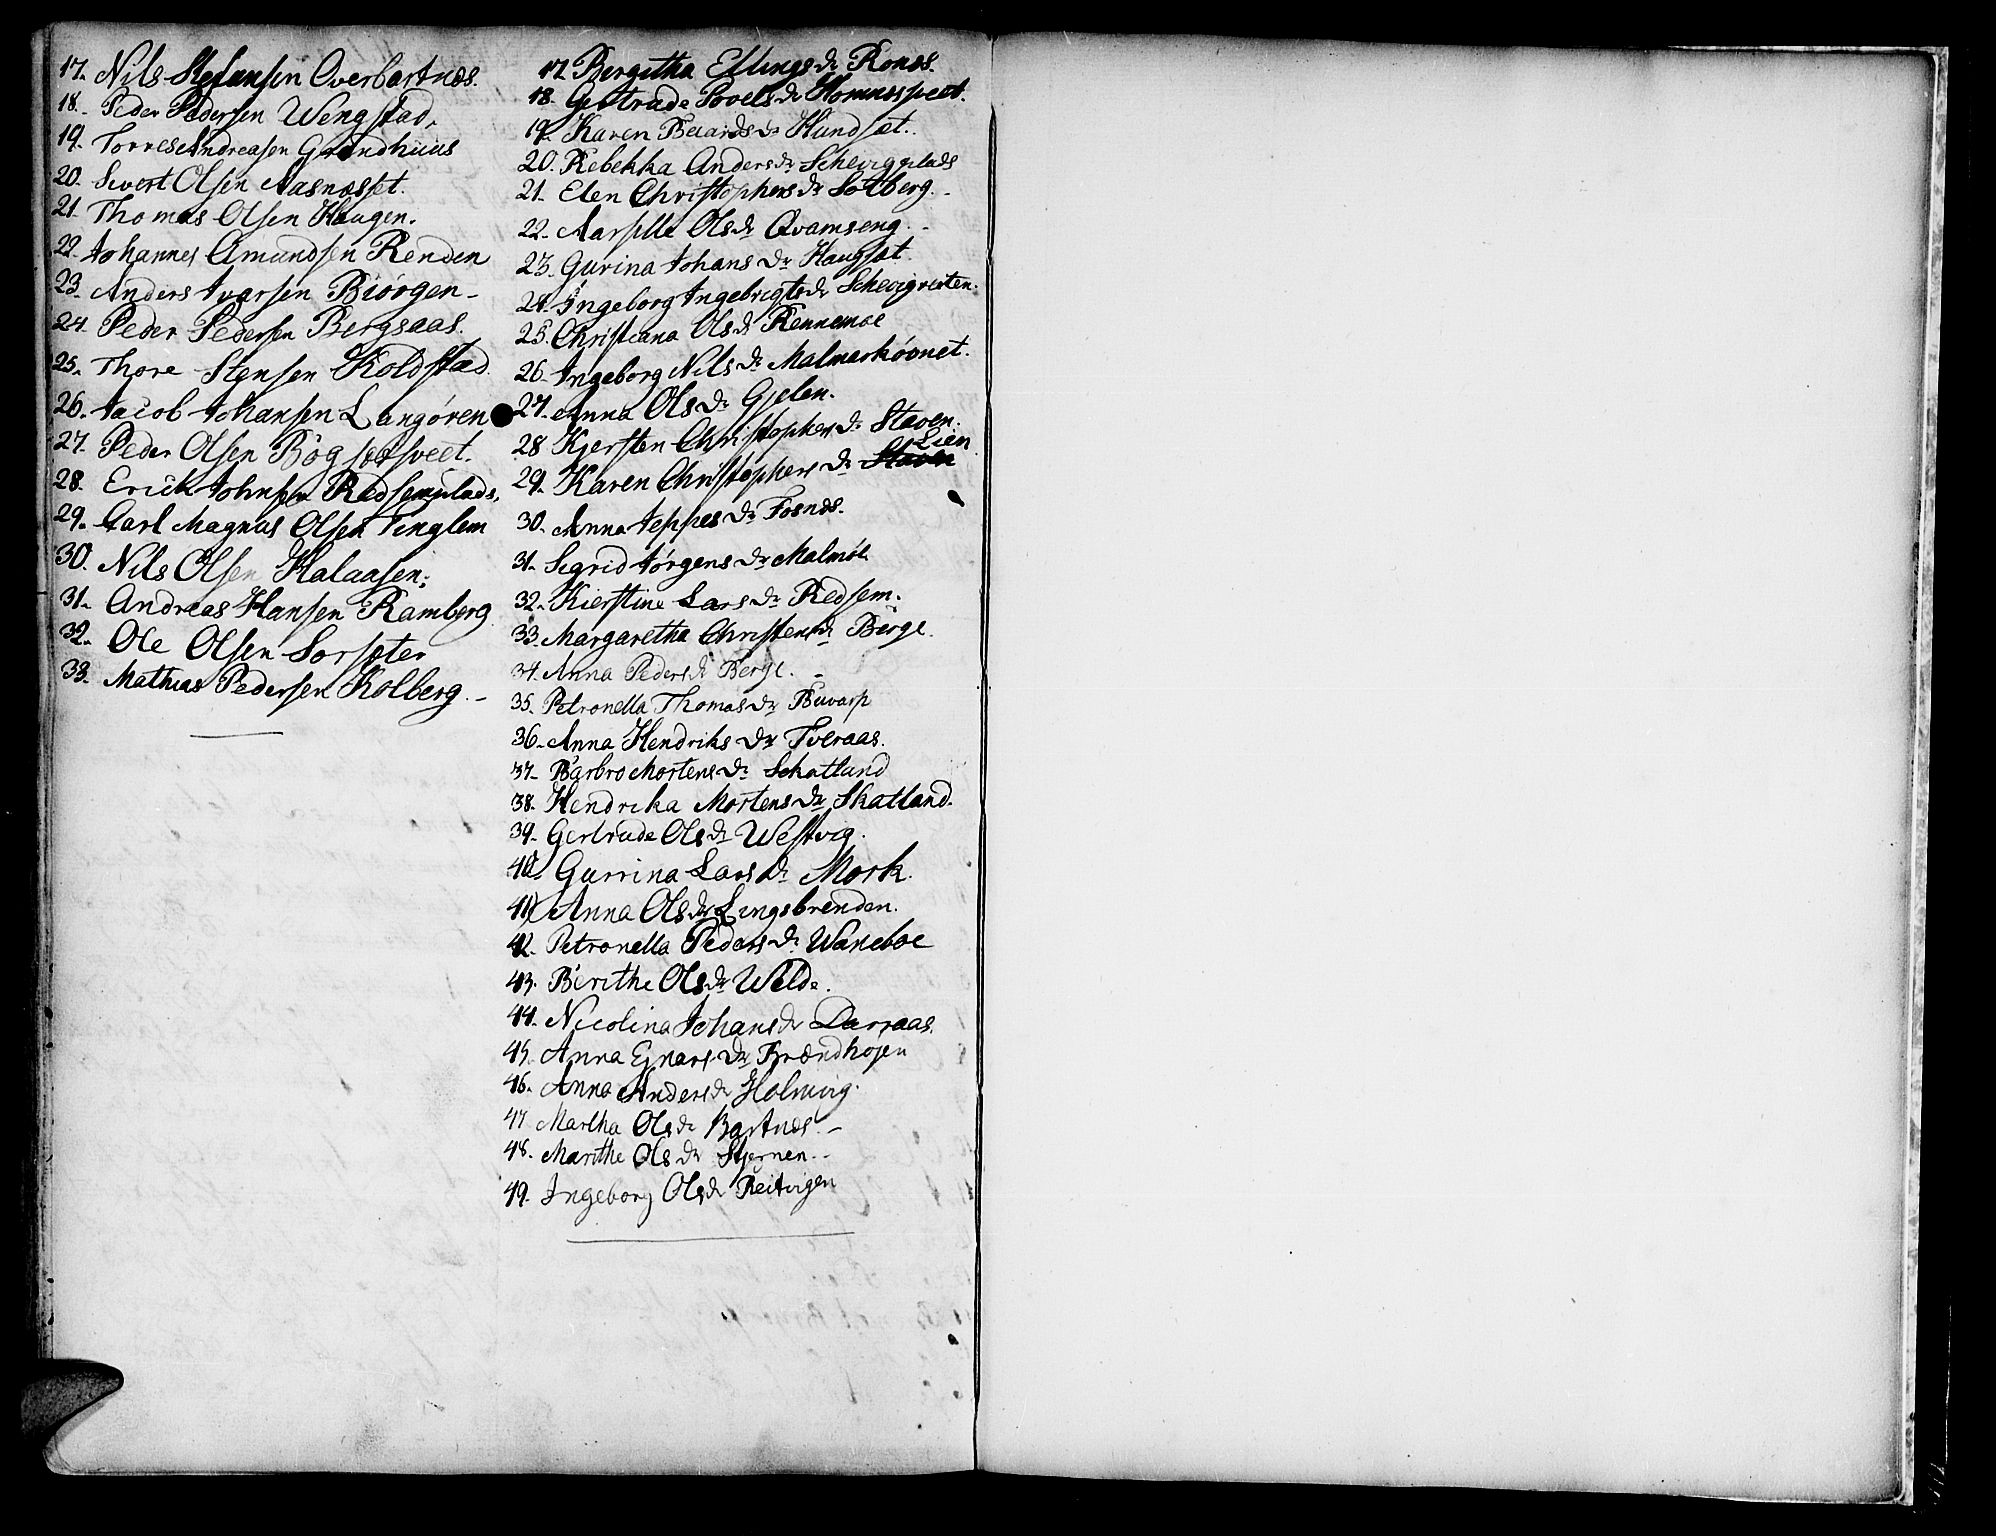 17. Nils Stefansen Overbartnæs.
18. Peder Pedersen Wengstad.
19. Torres Andreasen Grandhuus
20. Sivert Olsen Aasnæsset.
21. Thomas Olsen Haugen.
22. Johannes Amundsen Renden
23. Anders Ivarsen Biörgen
24. Peder Pedersen Bergsaas.
25. Thore Stensen Koldstad
26. Jacob Johansen Langören
27. Peder Olsen Bögsetsveet.
28. Erick Johnsen Redsemplads.
29. Carl Magnus Olsen Tinglem
30. Nils Olsen Halaasen.
31. Andreas Hansen Ramberg
32. Ole Olsen Sorseter
33. Mathias Pedersen Kolberg.
17. Bergitha Ellings dr Ronæs.
18. Gertrude Povels dr
19. Karen dr Hundsæt.
20. Rebekka Anders dr Schevigplads
21. Elen Christophers dr Solberg.
22. Aarsille Ols dr Qvamseng.
23. Gurina Johans dr Haugsæt.
24. Ingeborg Ingebrigts dr Schevigvesten.
25. Christiana Ols dr Rennemoe
26. Ingeborg Nils dr
27. Anna Ols dr Gjelen.
28 Kjersten Christophers dr Staven.
29. Karen Christophers dr Staven Lien
30. Anna Jeppes dr Fosnæs.
31. Sigrid Jörgens dr Malmöe
32. Kierstine Lars dr Redsem.
33. Margaretha Christens dr Berge.
34. Anna Peders dr Berge.
35. Petronella Thomas dr Buvarp
36. Anna Hendriks dr Tveraas.
37. Barbro Mortens dr Schatland
38. Hendrika Mortens dr Skatland.
39. Gertrude Ols dr Westvig.
40. Gurrina Lars dr Mork.
41. Anna Ols dr Lingsbrenden.
42. Petronella Peders dr Waneboe
43. Berithe Ols dr Welde.
44. Nicolina Johans dr Darraas.
45. Anna Ejnars dr Brændhojen
46. Anna Anders dr Holmvig.
47 Martha Ols dr Bartnæs.
48. Marithe Ols dr Stjernen.
49. Ingeborg Ols dr Reitvigen